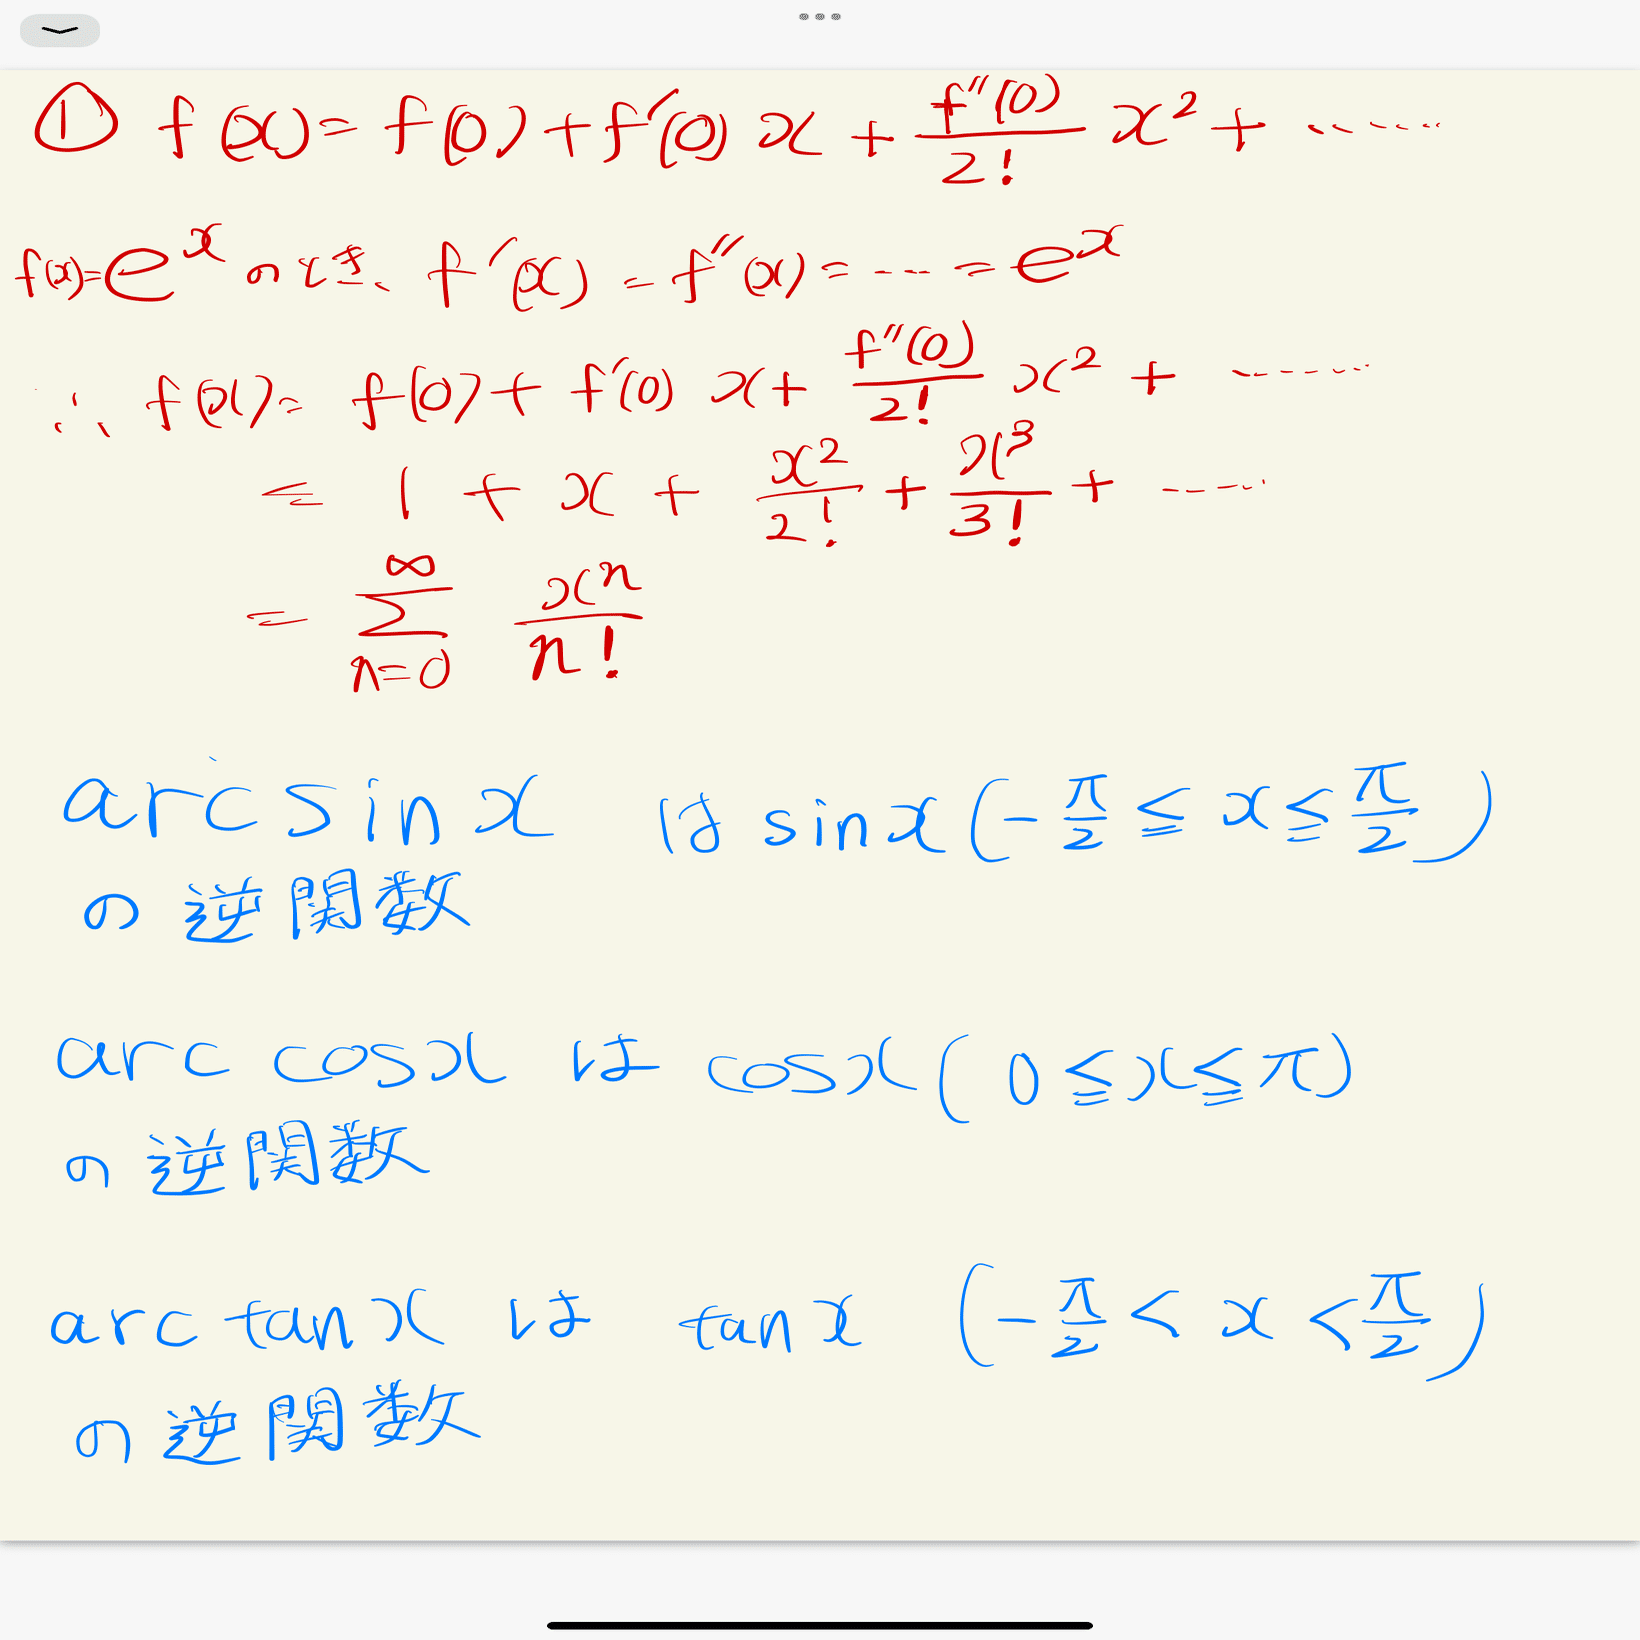 ① f(x) = f(0) + f'(0) x + f''(0)/2! x² + ……
f(x) = e^x のとき、f'(x) = f''(x) = … = e^x
∴ f(x) = f(0) + f'(0) x + f''(0)/2! x² + ……
= 1 + x + x²/2! + x³/3! + ……
= ∑_{n=0}^{∞} x^n/n!
arcsin x は sin x (-π/2 ≦ x ≦ π/2)
の逆関数
arc cos x は cos x (0 ≦ x ≦ π)
の逆関数
arc tan x は tan x (-π/2 < x < π/2)
の逆関数